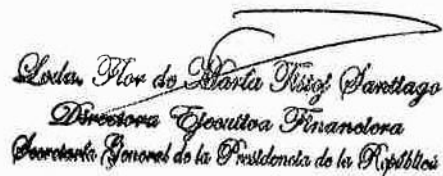 Licda. Flor de María Rios Santiago
Directora Ejecutiva Financiera
Secretaría General de la Presidencia de la República